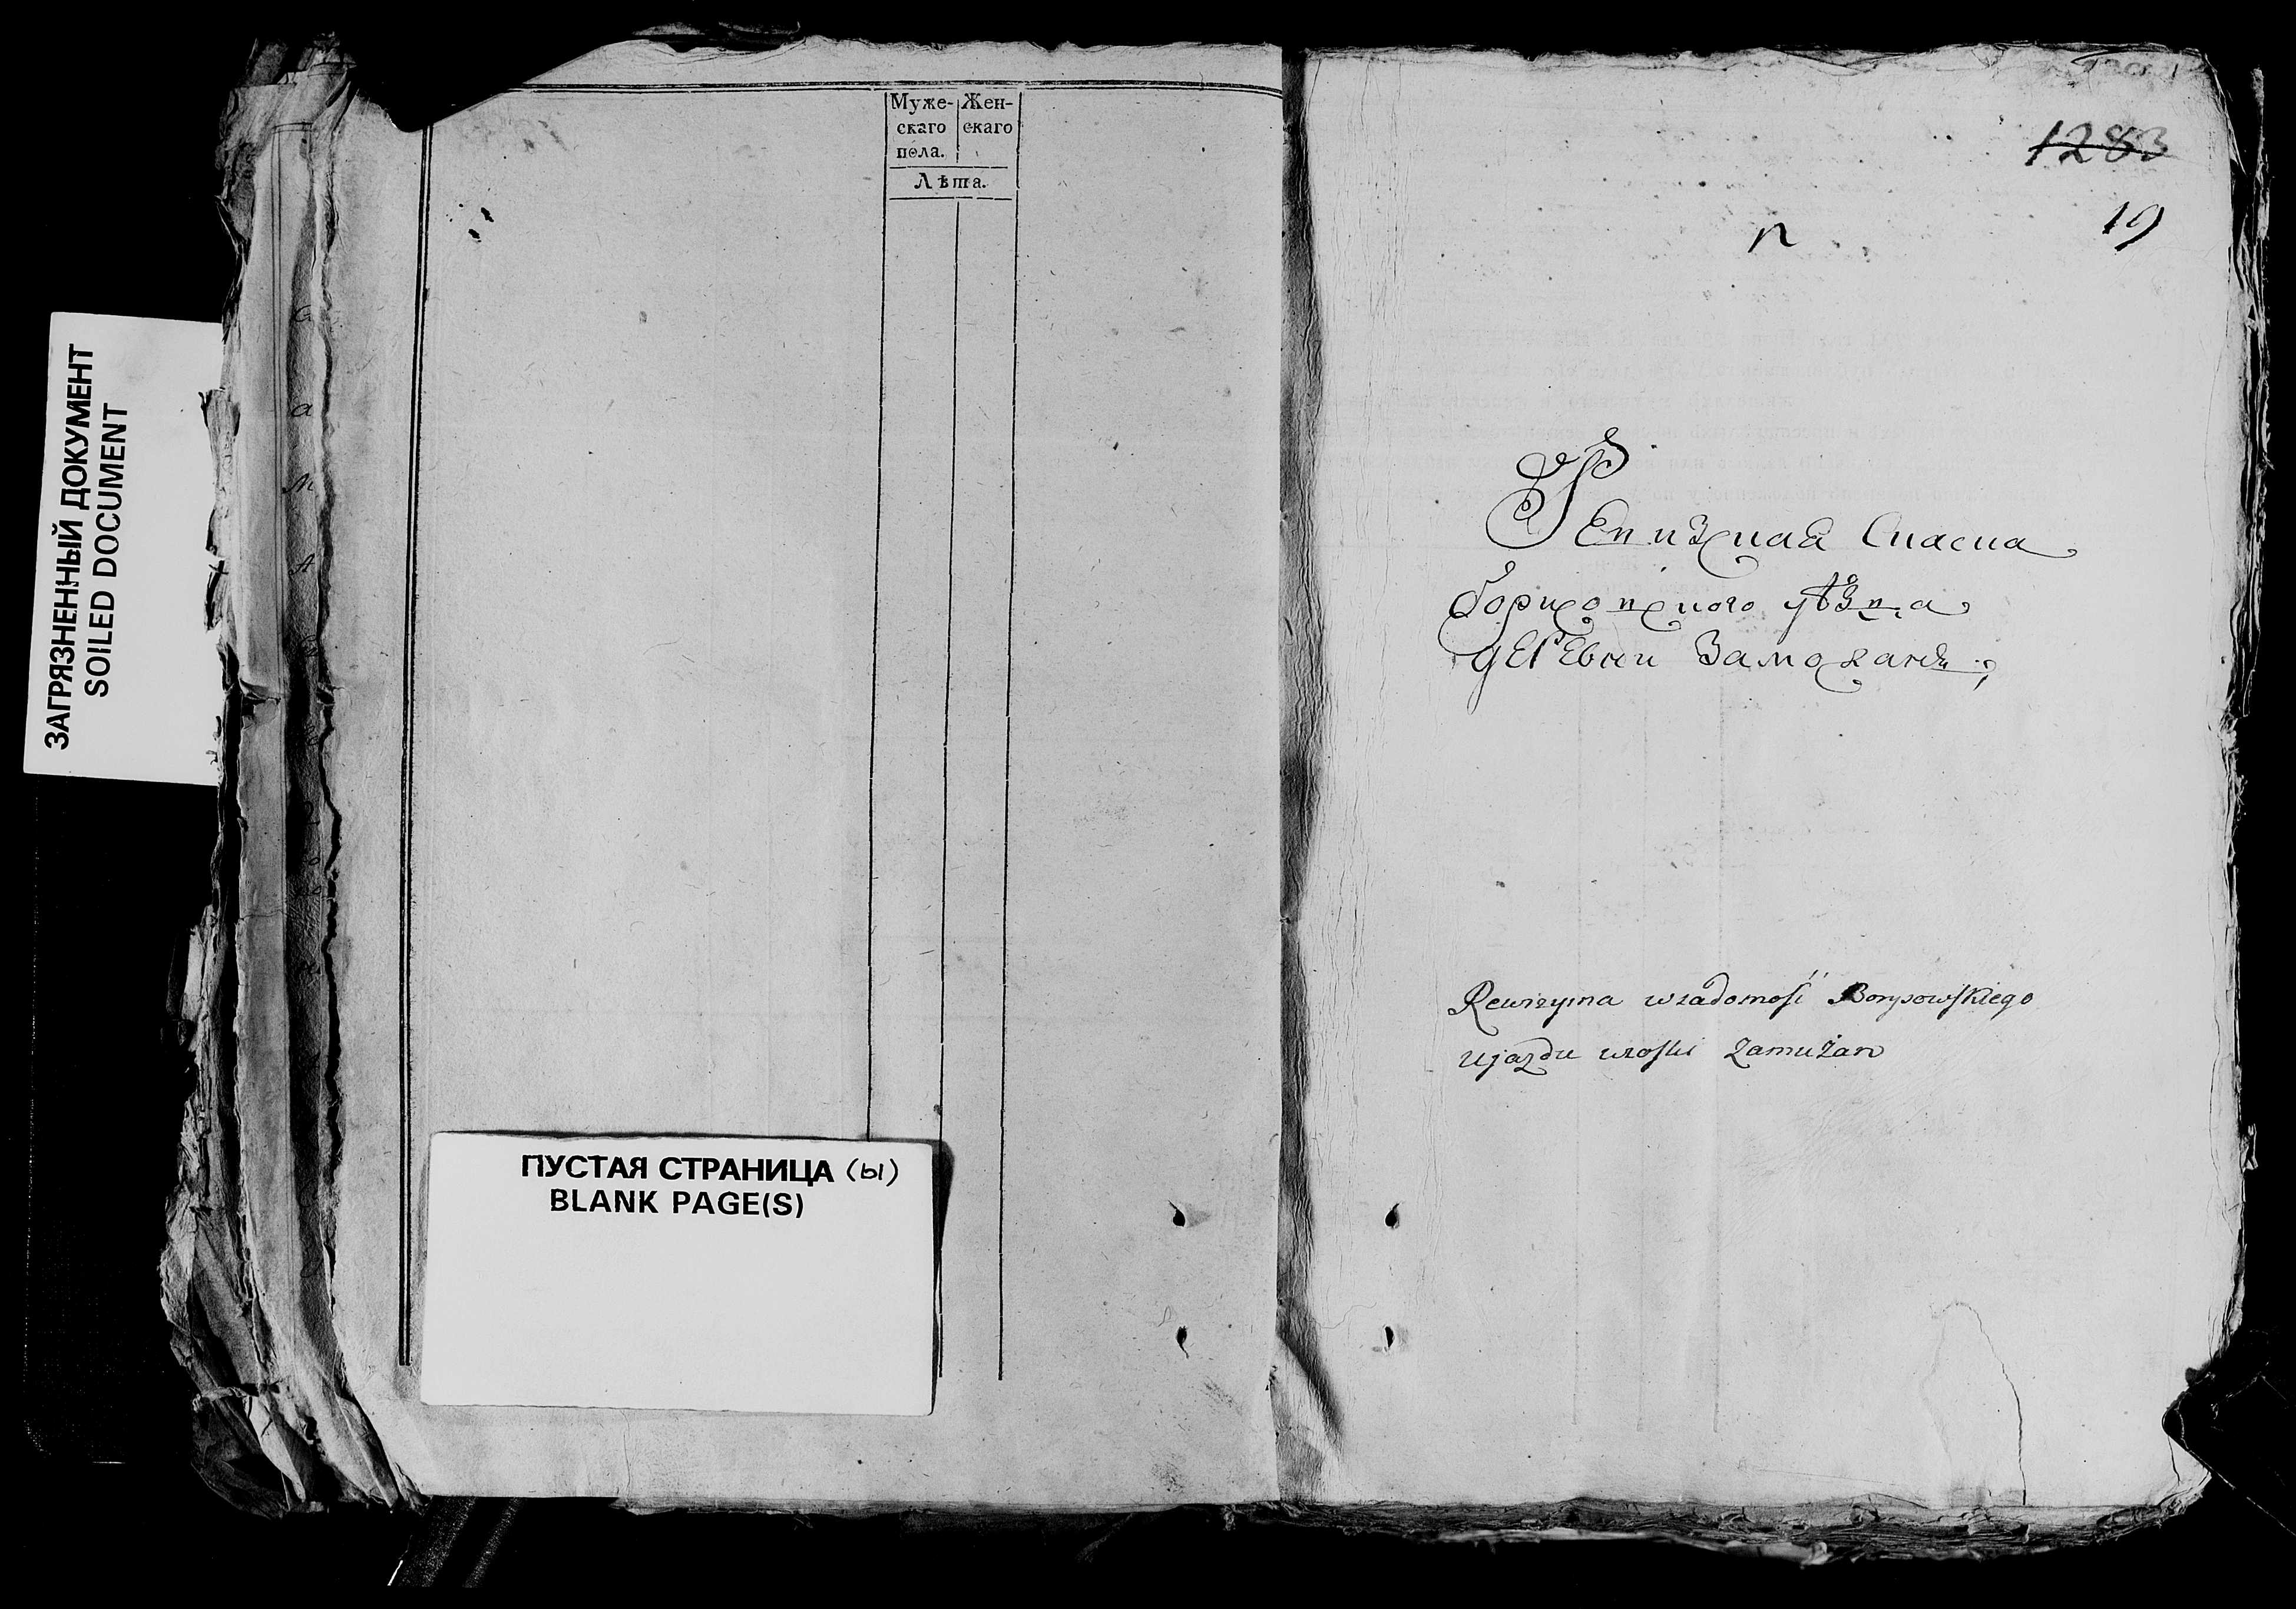 ЗАГРЯЗНЕННЫЙ ДОКУМЕНТ
SOILED DOCUMENT
Муже-
скаго
пола.
Жен-
скаго
Лѣта.
ПУСТАЯ СТРАНИЦА (ы)
BLANK PAGE(S)
1283
19
Ревизская Скаска
Борисовского уѣзда
деревни Заможанъ
Rewizyina wiadomość Borysowskiego
Ujazdu wioski Zamużan